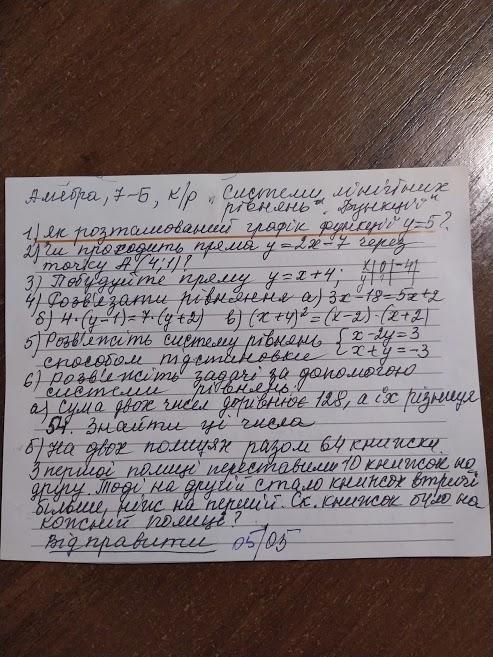 Алгебра, 7-Б, к/р „Системи лінійних
рівнянь". „Функції"
1) Як розташований графік функції y=5?
2) Чи проходить пряма y=2x-7 через
точку A (4;1)?
3) Побудуйте пряму y=x+4; x|0|-4|
y| | |
4) Розв'язати рівняння а) 3x-18=5x+2
б) 4·(y-1)=7·(y+2) в) (x+4)²=(x-2)·(x+2)
5) Розв'яжіть систему рівнянь { x-2y=3
способом підстановки { x+y=-3
6) Розв'яжіть задачі за допомогою
системи рівнянь.
а) Сума двох чисел дорівнює 128, а їх різниця
54. Знайти ці числа
б) На двох полицях разом 64 книжки.
З першої полиці переставили 10 книжок на
другу. Тоді на другій стало книжок втричі
більше, ніж на першій. Ск. книжок було на
кожній полиці?
Відправити 05/05